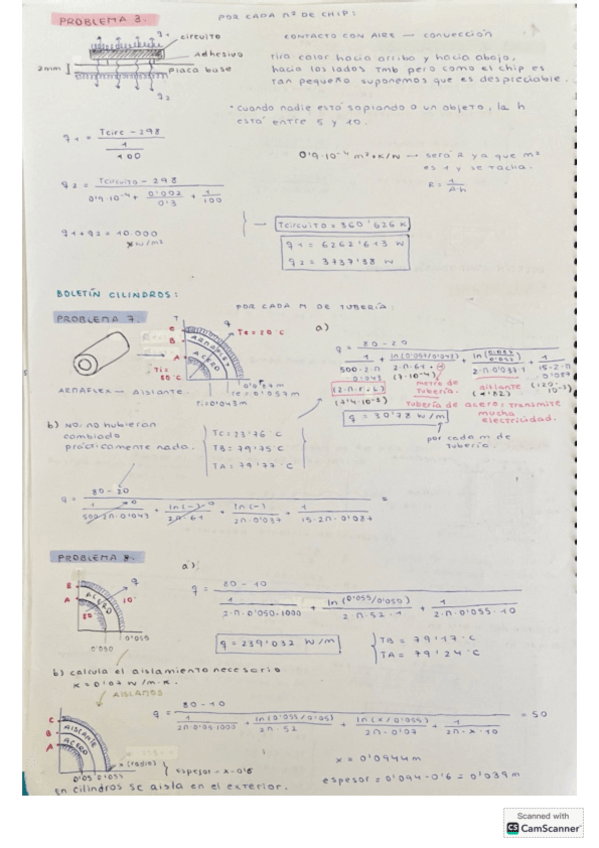 PROBLEMA 3.
POR CADA m² DE CHIP:
q1
circuito
Adhesivo
2mm
placa base
q2
CONTACTO CON AIRE — CONVECCIÓN
tira calor hacia arriba y hacia abajo,
hacia los lados tmb pero como el chip es
tan pequeño suponemos que es despreciable.
• Cuando nadie está soplando a un objeto, la h
está entre 5 y 10.
q1 = Tcirc - 298
1
100
0'9·10⁻⁴ m²·K/W → será R ya que m²
es 1 y se tacha.
R = 1
A·h
q2 = Tcircuito - 298
0'9·10⁻⁴ + 0'002 + 1
0'3 100
q1 + q2 = 10.000
W/m²
Tcircuito = 360'626 K
q1 = 6262'613 W
q2 = 3737'38 W
BOLETÍN CILINDROS:
PROBLEMA 7.
POR CADA M DE TUBERÍA.
T
C
B
A
ARMAFLEX
ACERO
q
Te = 20 °C
Ti =
80 °C
ri = 0'043m
ARMAFLEX → Aislante.
a)
q = 80 - 20
1 + ln(0'057/0'043) +
500·2·π
0'043
(2·π·r·L)
metro de
tubería.
aislante
Tubería de acero: transmite
mucha
electricidad.
q = 30'78 W/m
por cada m de
tubería.
b) No. no hubieran
cambiado
prácticamente nada.
TC = 23'76 °C
TB = 79'75 °C
TA = 79'77 °C
q = 80 - 20 =
1 + ln(-) + ln(-) + 1
500·2π·0'043 2π·61 2π·0'037 15·2π·0'087
PROBLEMA 8.
B
A
ACERO
q
10°
80°
0'050
0'055
a)
q = 80 - 10
1 + ln(0'055/0'050) + 1
2·π·0'050·1000 2·π·52·1 2·π·0'055·10
q = 239'032 W/m
TB = 79'17 °C
TA = 79'24 °C
b) calcula el aislamiento necesario
x = 0'07 W/m·K.
AISLAMOS
C
B
A
AISLANTE
ACERO
0'05 0'055
x (radio)
q = 80 - 10 = 50
1 + ln(0'055/0'05) + ln(x/0'055) + 1
2π·0'05·1000 2π·52 2π·0'07 2π·x·10
x = 0'0944m
espesor = 0'094 - 0'6 = 0'039m
en cilindros se aisla en el exterior.
Scanned with
CS CamScanner